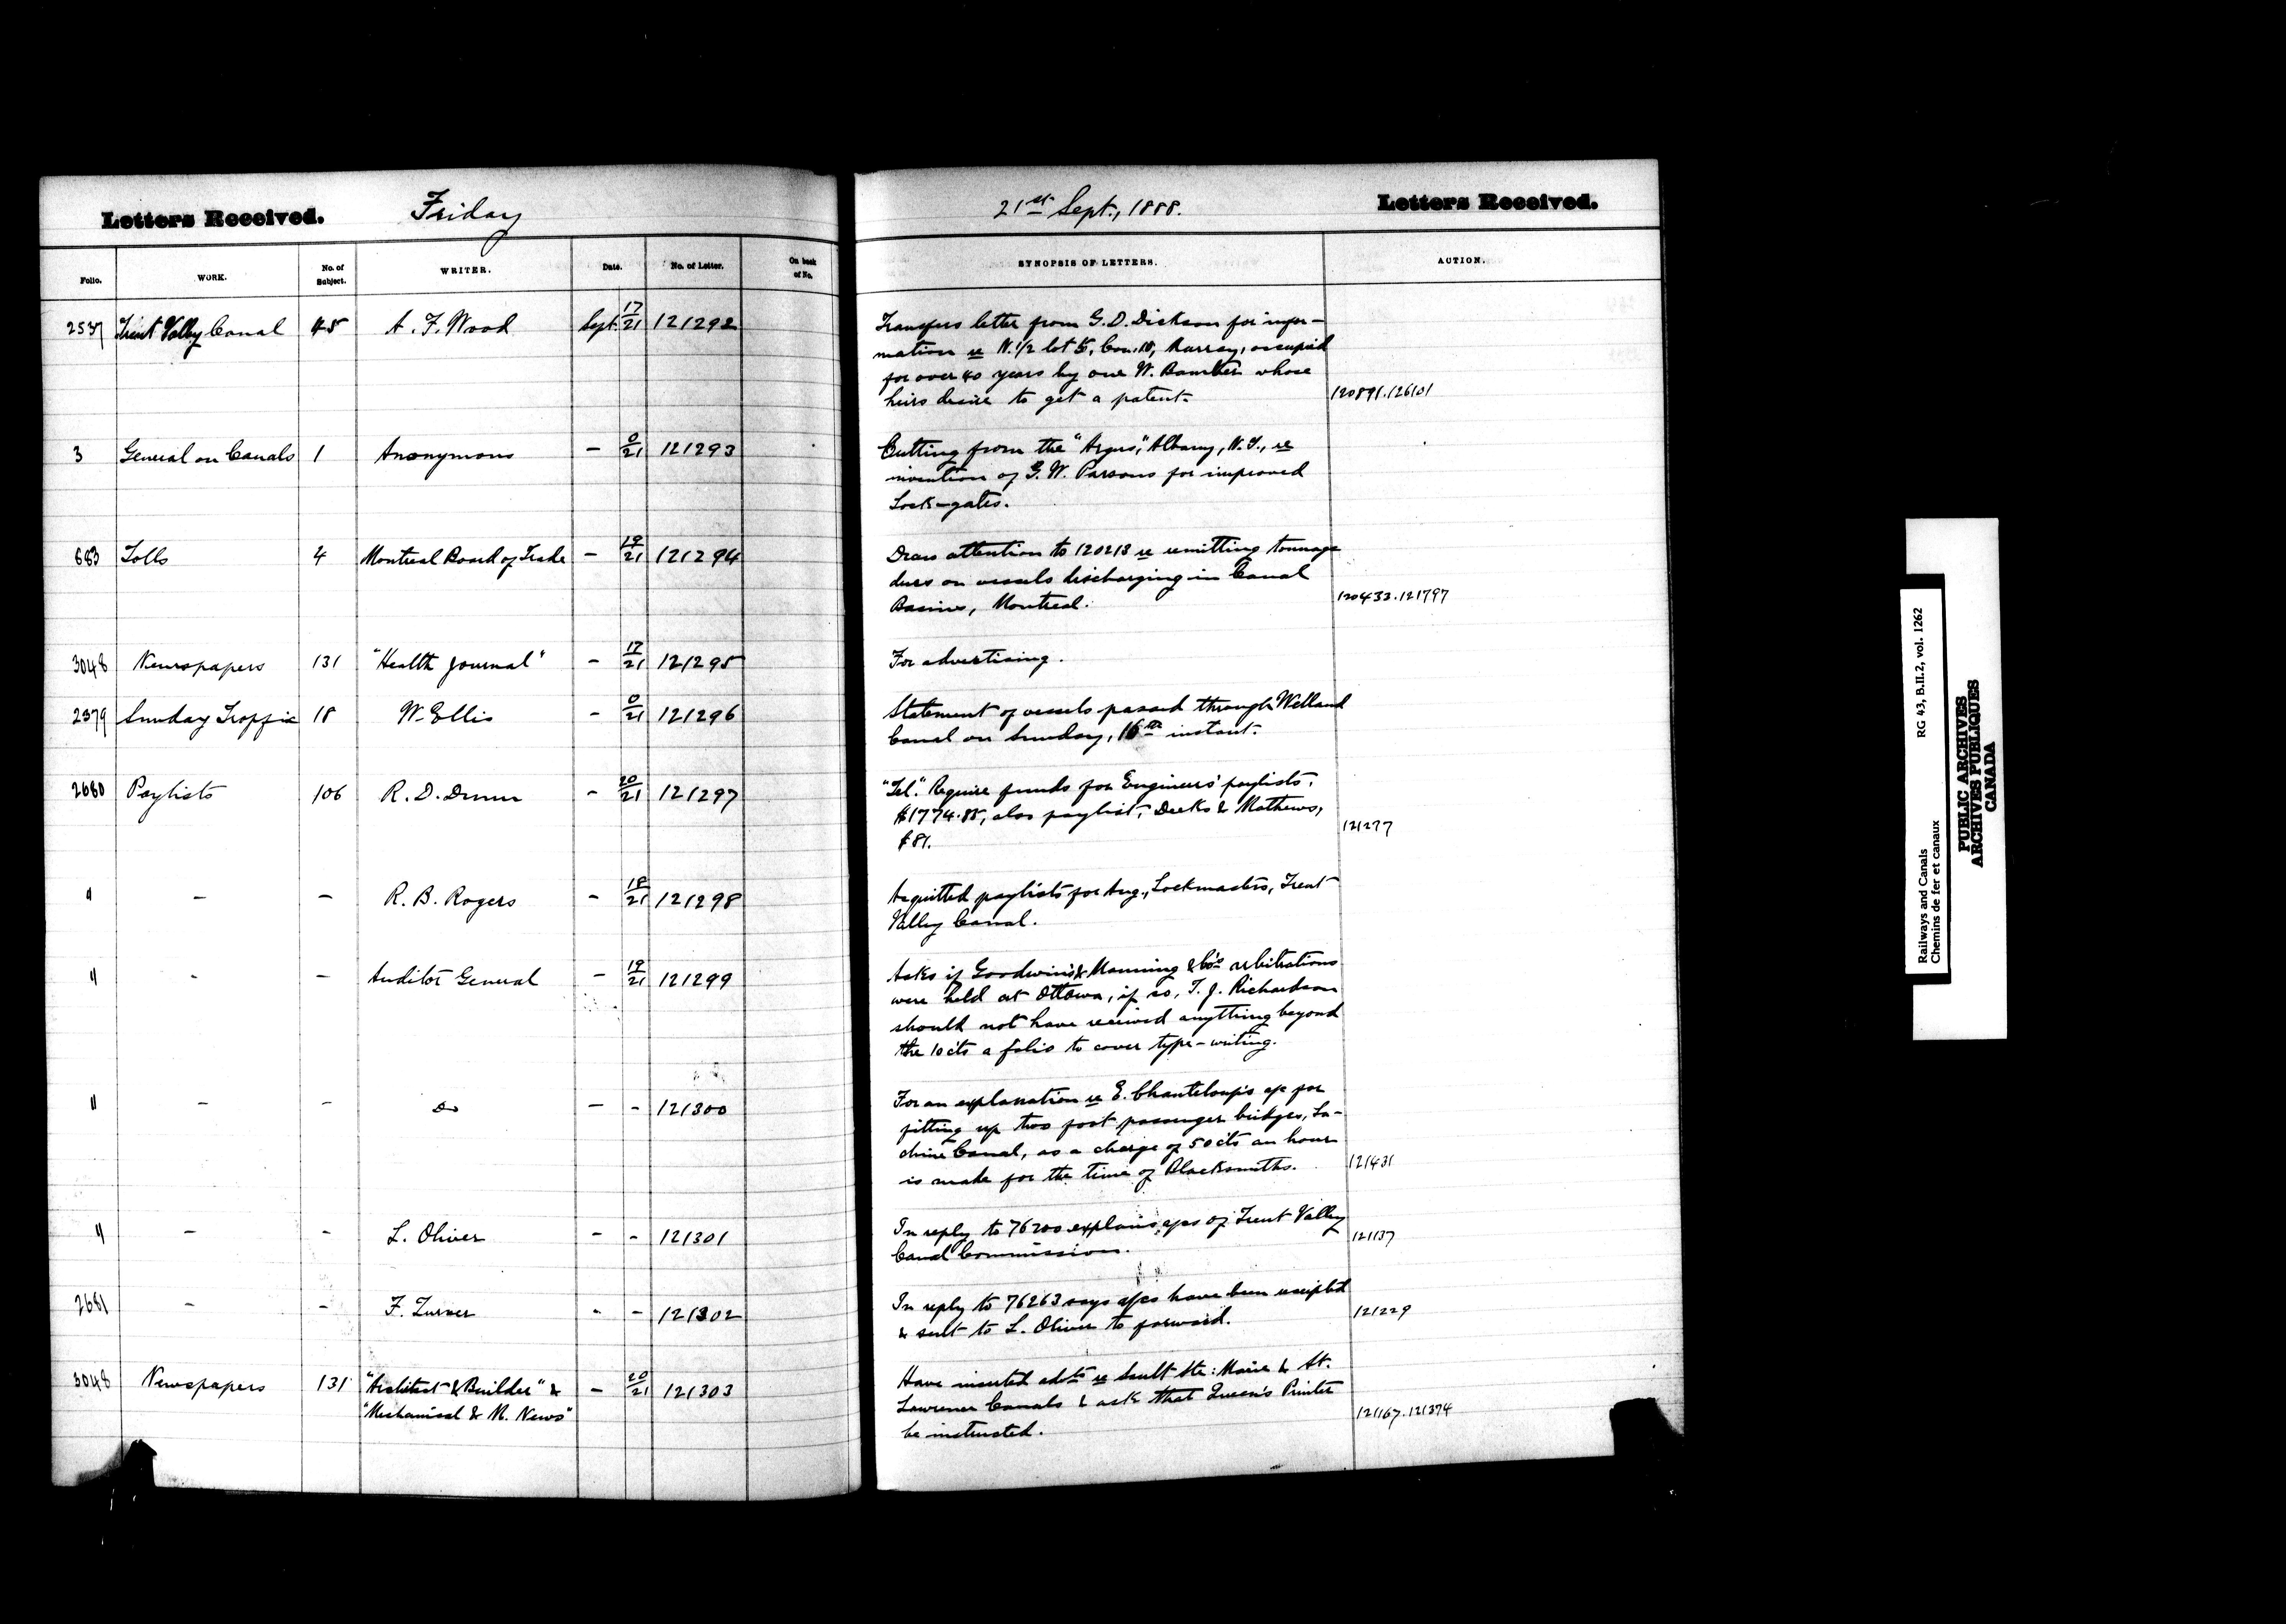 Letters Received.
Friday
21st Sept., 1888.
Letters Received.
Folio. WORK. No. of Subject. WRITER. Date. No. of Letter. On back of No. SYNOPSIS OF LETTERS. ACTION.
2537 Trent Valley Canal 45 A. F. Wood Sept. 17/21 121292
Transfers letter from G. D. Dickson for infor-
mation re N. 1/2 lot 5, Con. 10, Murray, occupied
for over 40 years by one W. whose
heirs desire to get a patent.
120891.126101
3 General on Canals 1 Anonymous - 0/21 121293
Cutting from the "Argus", Albany, N.Y., re
invention of G. W. Parsons for improved
Lock-gates.
683 Tolls 4 Montreal Board of Trade - 19/21 121294
Draw attention to 120213 re remitting tonnage
dues on vessels discharging in Canal
Basins, Montreal.
120433.121797
3048 Newspapers 131 "Health Journal" - 17/21 121295
For advertising.
2379 Sunday Traffic 18 W. Ellis - 0/21 121296
Statement of vessels passed through Welland
Canal on Sunday, 16th instant.
2680 Paylists 106 R. D. Dunn - 20/21 121297
"Tel." Require funds for Engineers' paylists,
$1774.88, also paylist, Deeks & Mathews,
$81.
121277
" - - R. B. Rogers - 18/21 121298
Acquitted paylists for Aug., Lockmasters, Trent
Valley Canal.
" - - Auditor General - 19/21 121299
Asks if Goodwin's & Manning & Co's arbitrations
were held at Ottawa, if so, T. J. Richardson
should not have received anything beyond
the 10 cts a folio to cover type-writing.
" - - Do - - 121300
For an explanation re E. Chanteloup's a/c for
fitting up two foot passenger bridges, La-
chine Canal, as a charge of 50 cts an hour
is made for the time of Blacksmiths.
121431
" - - L. Oliver - - 121301
In reply to 76200 explains a/cs of Trent Valley
Canal Commission.
121137
2681 - - F. Turner - - 121302
In reply to 76263 says a/cs have been receipted
& sent to L. Oliver to forward.
121229
3048 Newspapers 131 "Architect & Builder" & - 20/21 121303
"Mechanical & M. News"
Have inserted advts re Sault Ste: Marie & St.
Lawrence Canals & ask that Queen's Printer
be instructed.
121167.121374
Railways and Canals RG 43, B.II.2, vol. 1262
Chemins de fer et canaux
PUBLIC ARCHIVES
ARCHIVES PUBLIQUES
CANADA